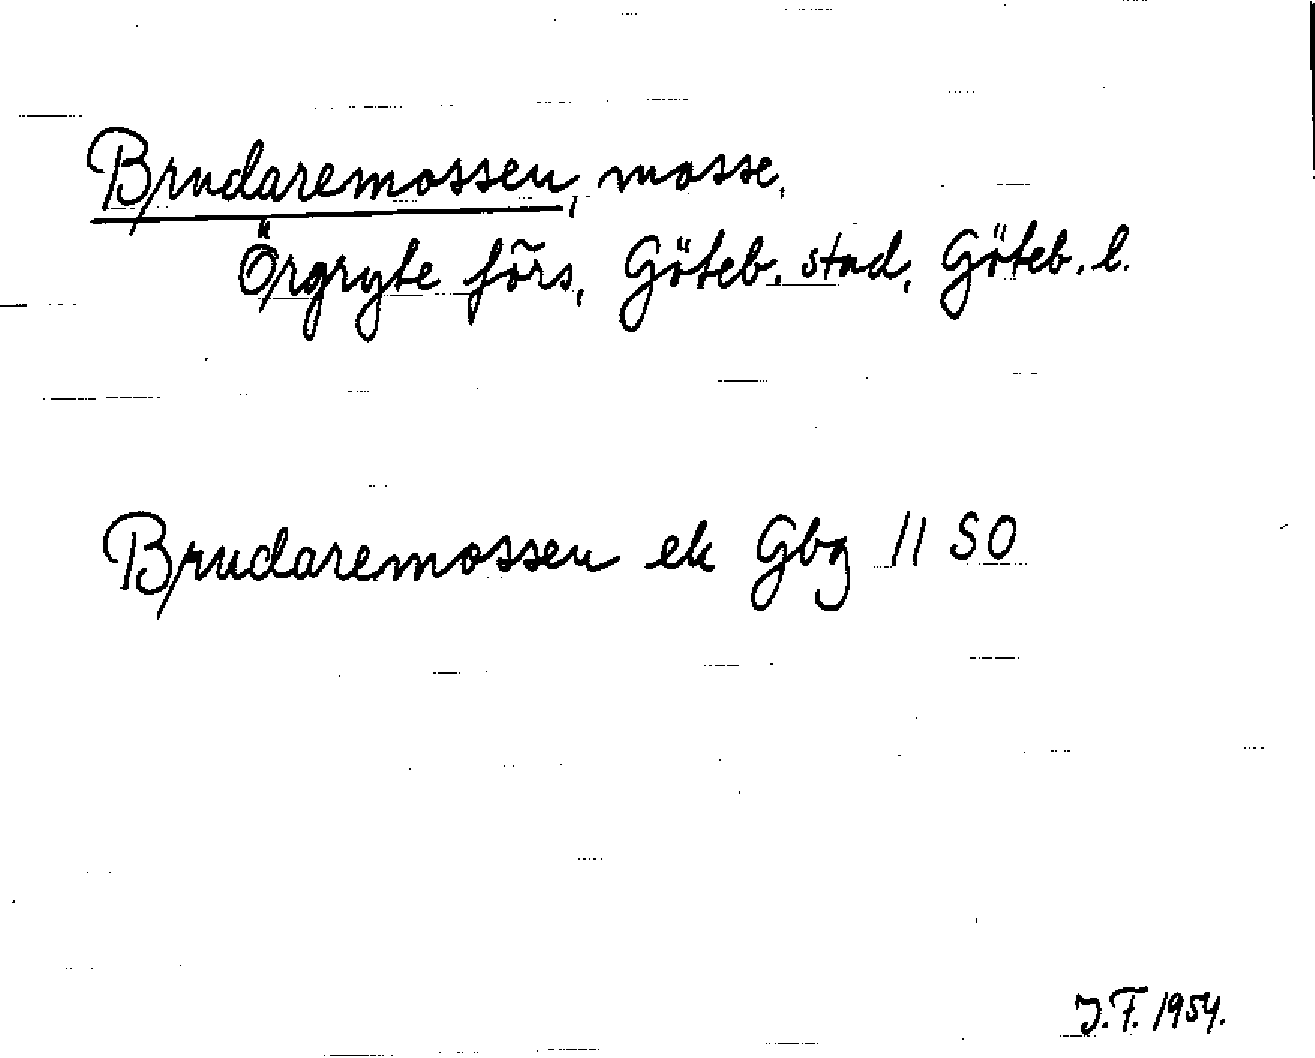 Brudaremossen, mosse,
Örgryte förs, Göteb. stad, Göteb. l.
Brudaremossen ek Gbg 11 SO
J.F. 1954.